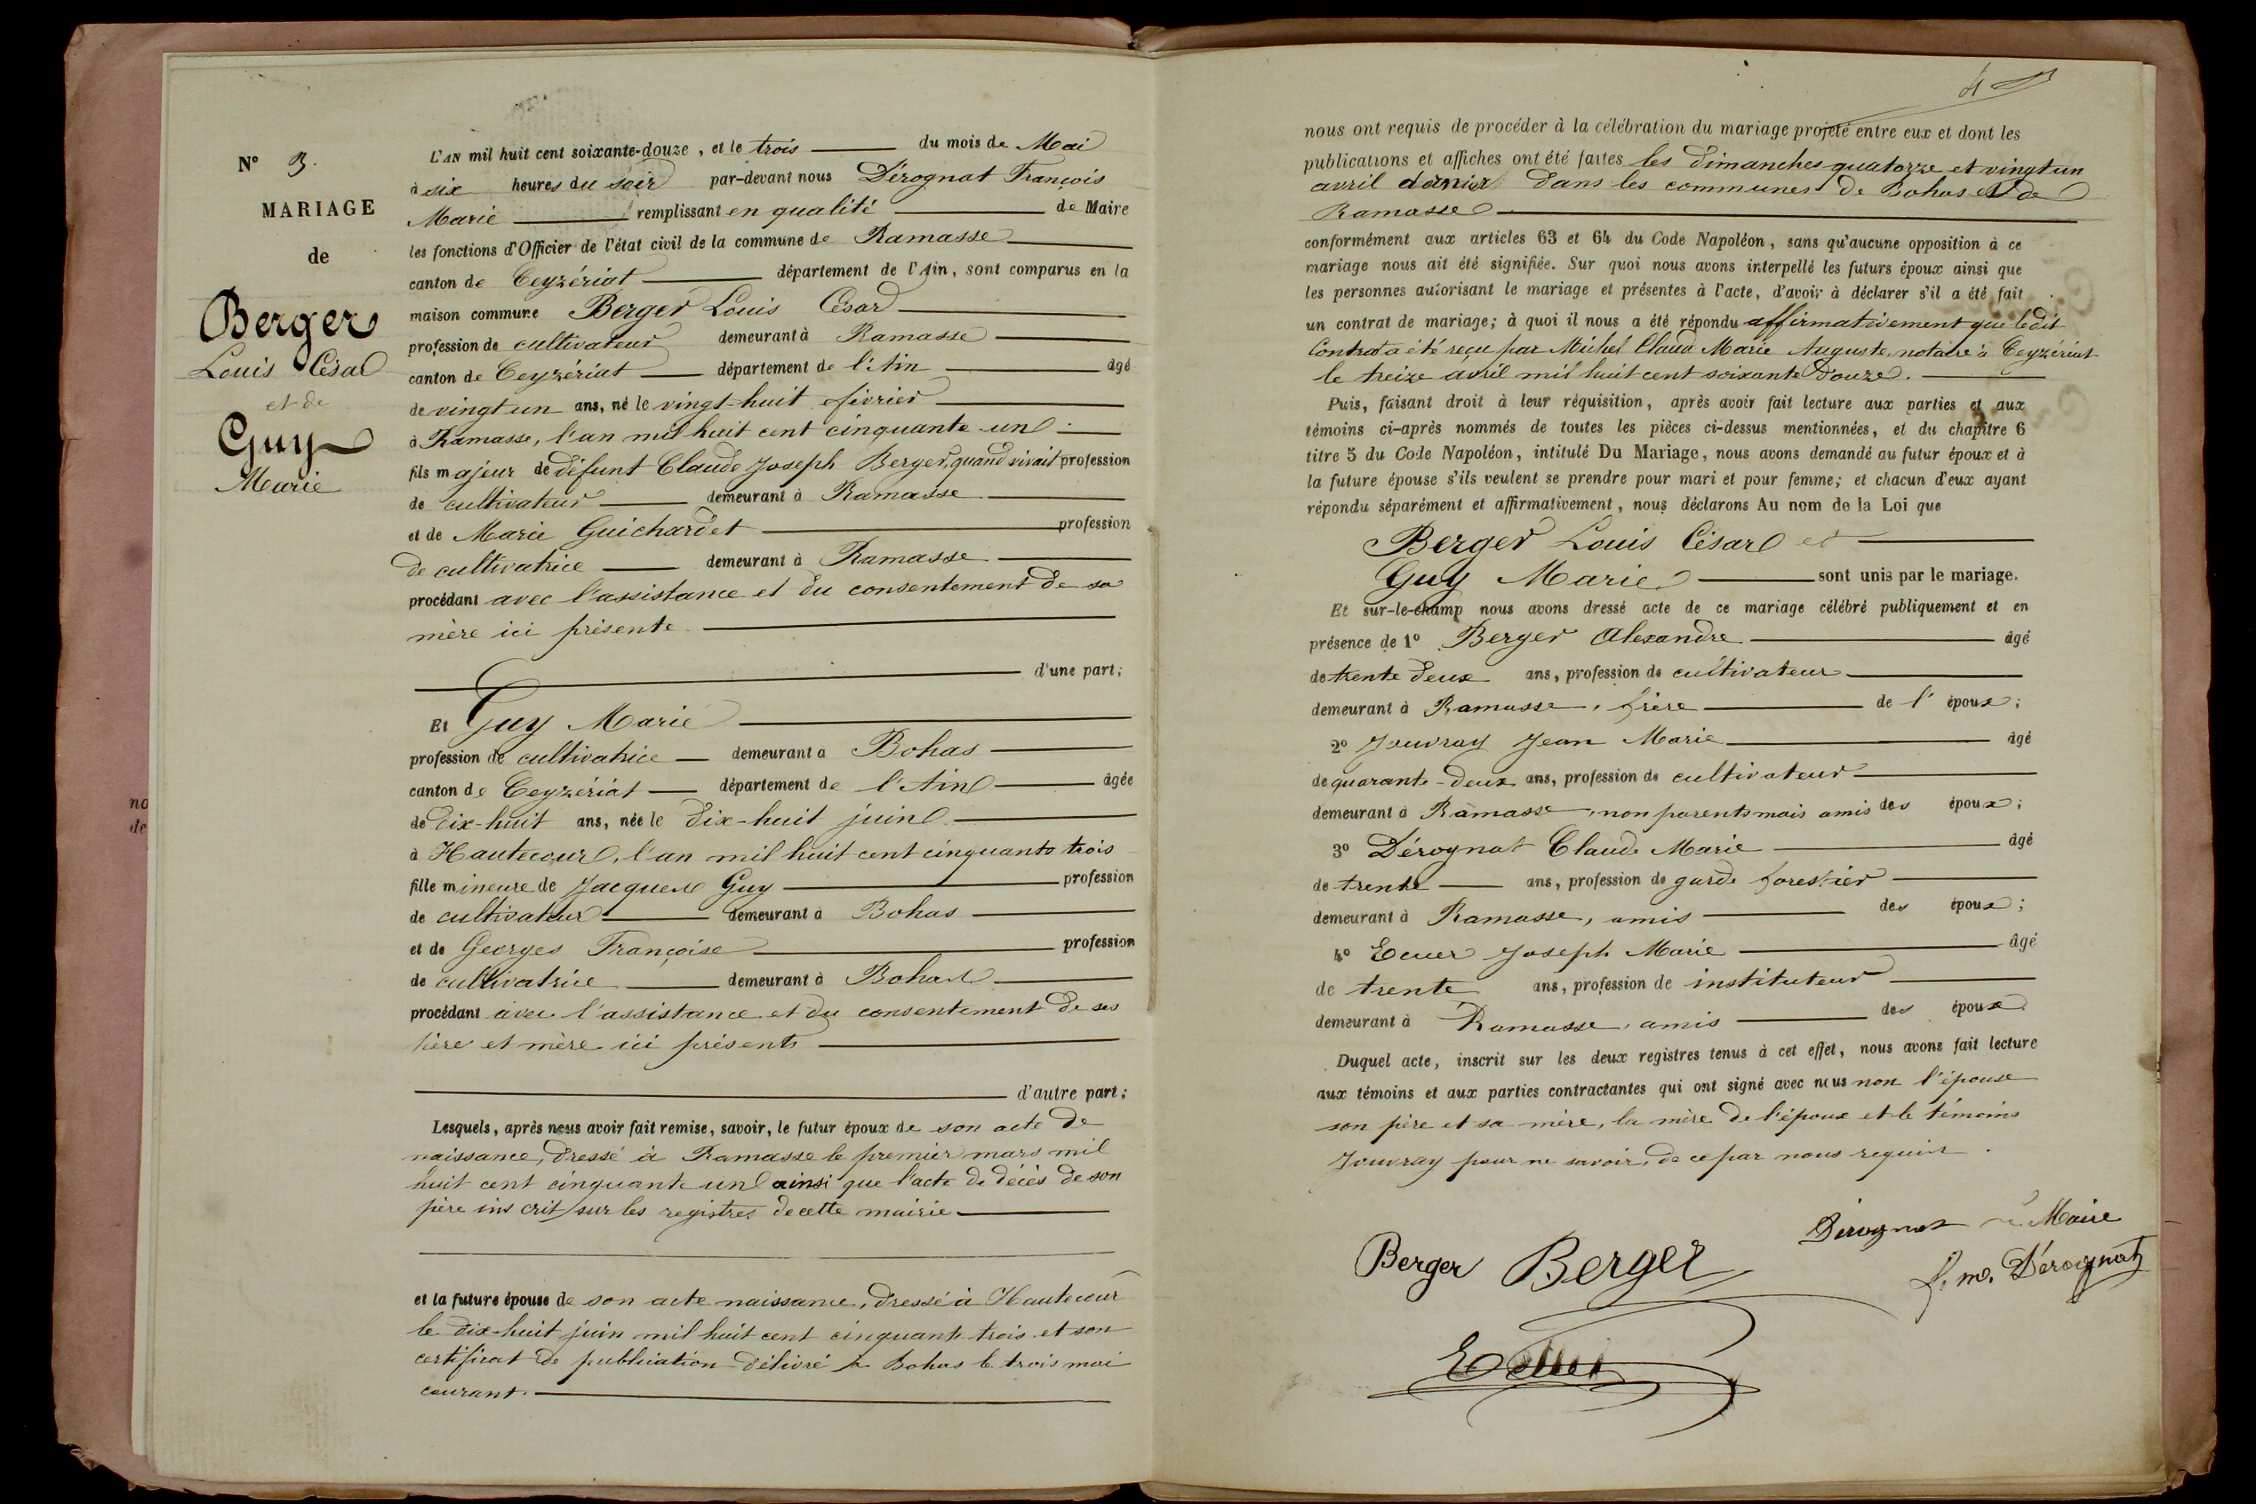 N° 3.
MARIAGE
de
Berger
Louis César
et de
Guy
Marie
L'AN mil huit cent soixante-douze, et le trois du mois de Mai
à six heures du soir par-devant nous Dérognat François
Marie remplissant en qualité de Maire
les fonctions d'Officier de l'état civil de la commune de Ramasse
canton de Ceyzériat département de l'Ain, sont comparus en la
maison commune Berger Louis César
profession de cultivateur demeurant à Ramasse
canton de Ceyzériat département de l'Ain âgé
de vingt un ans, né le vingt-huit février
à Ramasse, l'an mil huit cent cinquante-un
fils majeur de défunt Claude Joseph Berger, quand vivait profession
de cultivateur demeurant à Ramasse
et de Marie Guichardet profession
de cultivatrice demeurant à Ramasse
procédant avec l'assistance et du consentement de sa
mère ici présente
d'une part;
Et Guy Marie
profession de cultivatrice demeurant a Bohas
canton de Ceyzériat département de l'Ain âgée
de dix-huit ans, née le dix-huit juin
à Hautecour, l'an mil huit cent cinquante trois
fille mineure de Jacques Guy profession
de cultivateur demeurant à Bohas
et de Georges Françoise profession
de cultivatrice demeurant à Bohas
procédant avec l'assistance et du consentement de ses
père et mère ici présents
d'autre part;
Lesquels, après nous avoir fait remise, savoir, le futur époux de son acte de
naissance, dressé à Ramasse le premier mars mil
huit cent cinquante un ainsi que l'acte de décès de son
père inscrit sur les registres de cette mairie
et la future épouse de son acte naissance, dressé à Hautecour
le dix-huit juin mil huit cent cinquante trois et son
certificat de publication délivré à Bohas le trois mai
courant.
4
nous ont requis de procéder à la célébration du mariage projeté entre eux et dont les
publications et affiches ont été faites les dimanches quatorze et vingt un
avril dernier dans les communes de Bohas et de
Ramasse
conformément aux articles 63 et 64 du Code Napoléon, sans qu'aucune opposition à ce
mariage nous ait été signifiée. Sur quoi nous avons interpellé les futurs époux ainsi que
les personnes autorisant le mariage et présentes à l'acte, d'avoir à déclarer s'il a été fait
un contrat de mariage; à quoi il nous a été répondu affirmativement que le dit
Contrat a été reçu par Michel Claud Marie Auguste, notaire à Ceyzériat
le treize avril mil huit cent soixante douze.
Puis, faisant droit à leur réquisition, après avoir fait lecture aux parties et aux
témoins ci-après nommés de toutes les pièces ci-dessus mentionnées, et du chapitre 6
titre 5 du Code Napoléon, intitulé Du Mariage, nous avons demandé au futur époux et à
la future épouse s'ils veulent se prendre pour mari et pour femme; et chacun d'eux ayant
répondu séparément et affirmativement, nous déclarons Au nom de la Loi que
Berger Louis César et
Guy Marie sont unis par le mariage.
Et sur-le-champ nous avons dressé acte de ce mariage célébré publiquement et en
présence de 1° Berger Alexandre âgé
de trente deux ans, profession de cultivateur
demeurant à Ramasse, frère de l'époux;
2° Jouvray Jean Marie âgé
de quarante-deux ans, profession de cultivateur
demeurant à Ramasse, non parents mais amis des époux;
3° Dérognat Claude Marie âgé
de trente ans, profession de garde forestier
demeurant à Ramasse, amis des époux;
4° Ecuer Joseph Marie âgé
de trente ans, profession de instituteur
demeurant à Ramasse, amis des époux
Duquel acte, inscrit sur les deux registres tenus à cet effet, nous avons fait lecture
aux témoins et aux parties contractantes qui ont signé avec nous non l'épouse
son père et sa mère, la mère de l'époux et le témoins
Jouvray pour ne savoir, de ce par nous requis.
Dérognat Maire
Berger Berger
Dérognat